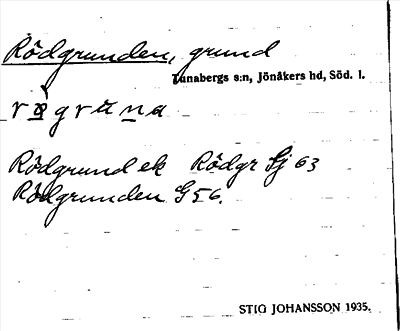 Rödgrunden, grund
Tunabergs s:n, Jönåkers hd, Söd. l.
Rödgrund ek Rödgr Sj 63
Rödgrunden G 56.
STIG JOHANSSON 1935.